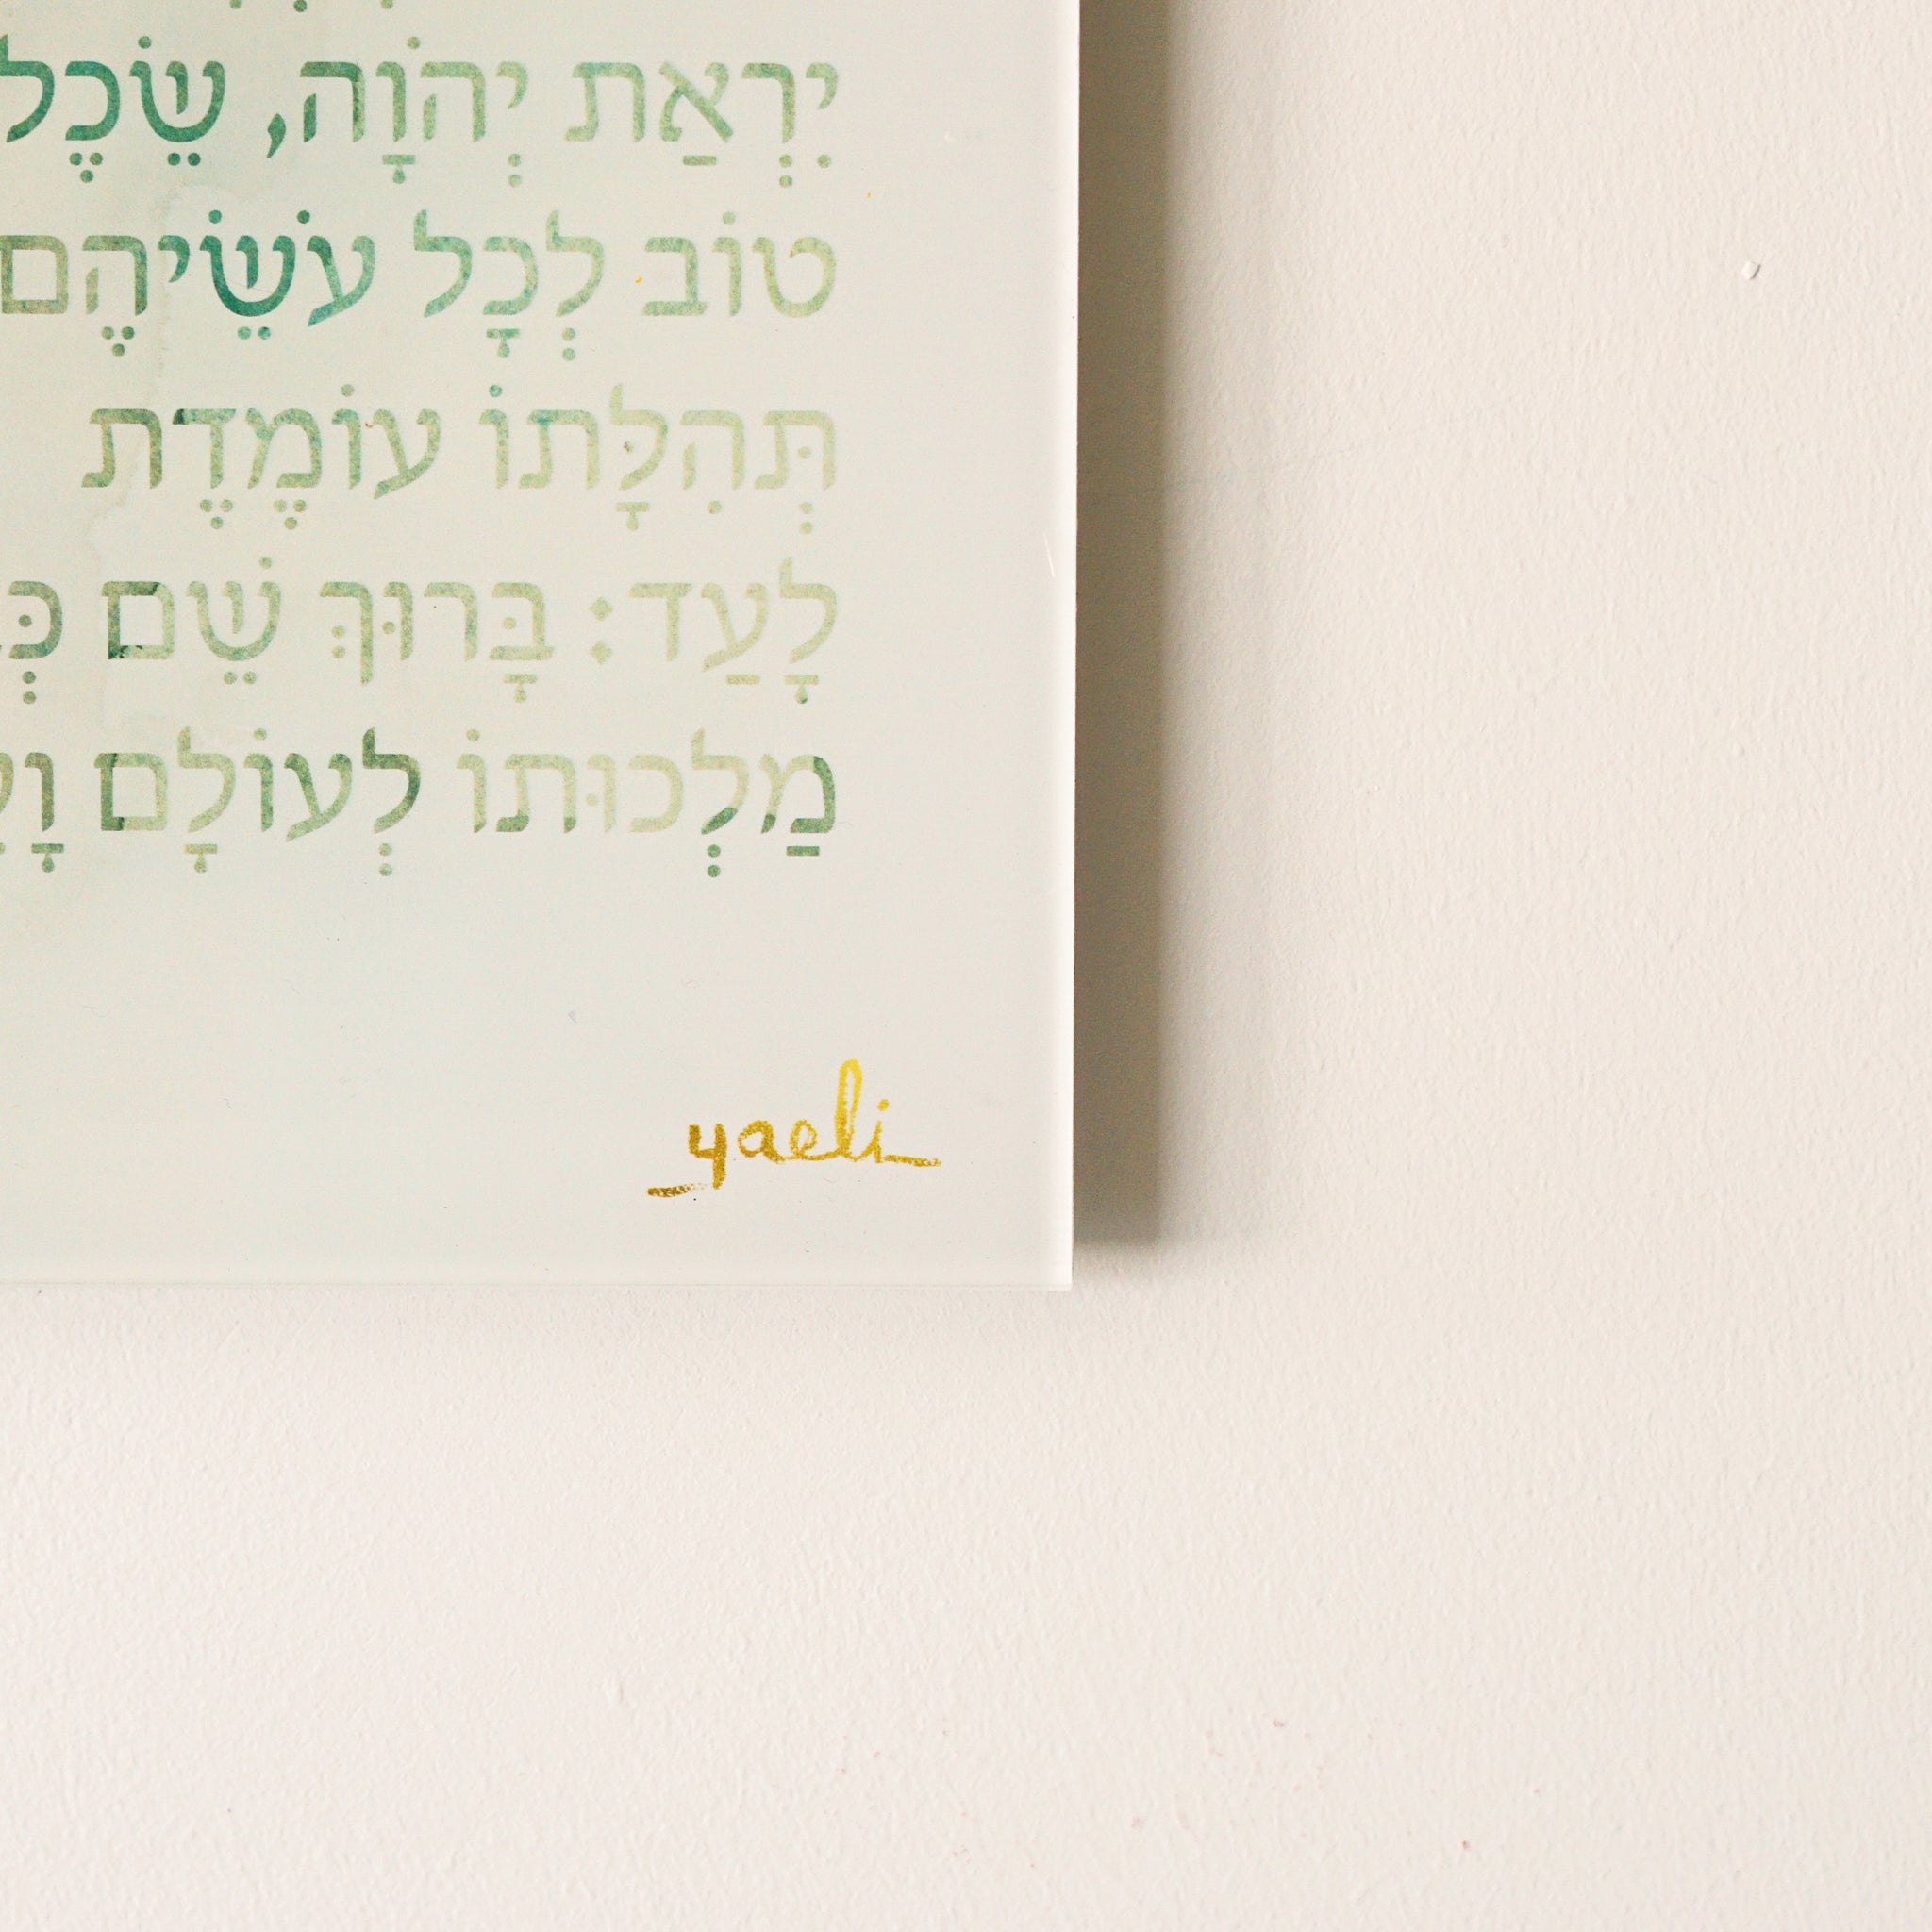 יִרְאַת יְהֹוָה, שֵׂכֶל
טוֹב לְכָל עֹשֵׂיהֶם
תְּהִלָּתוֹ עוֹמֶדֶת
לָעַד: בָּרוּךְ שֵׁם
מַלְכוּתוֹ לְעוֹלָם
yaeli